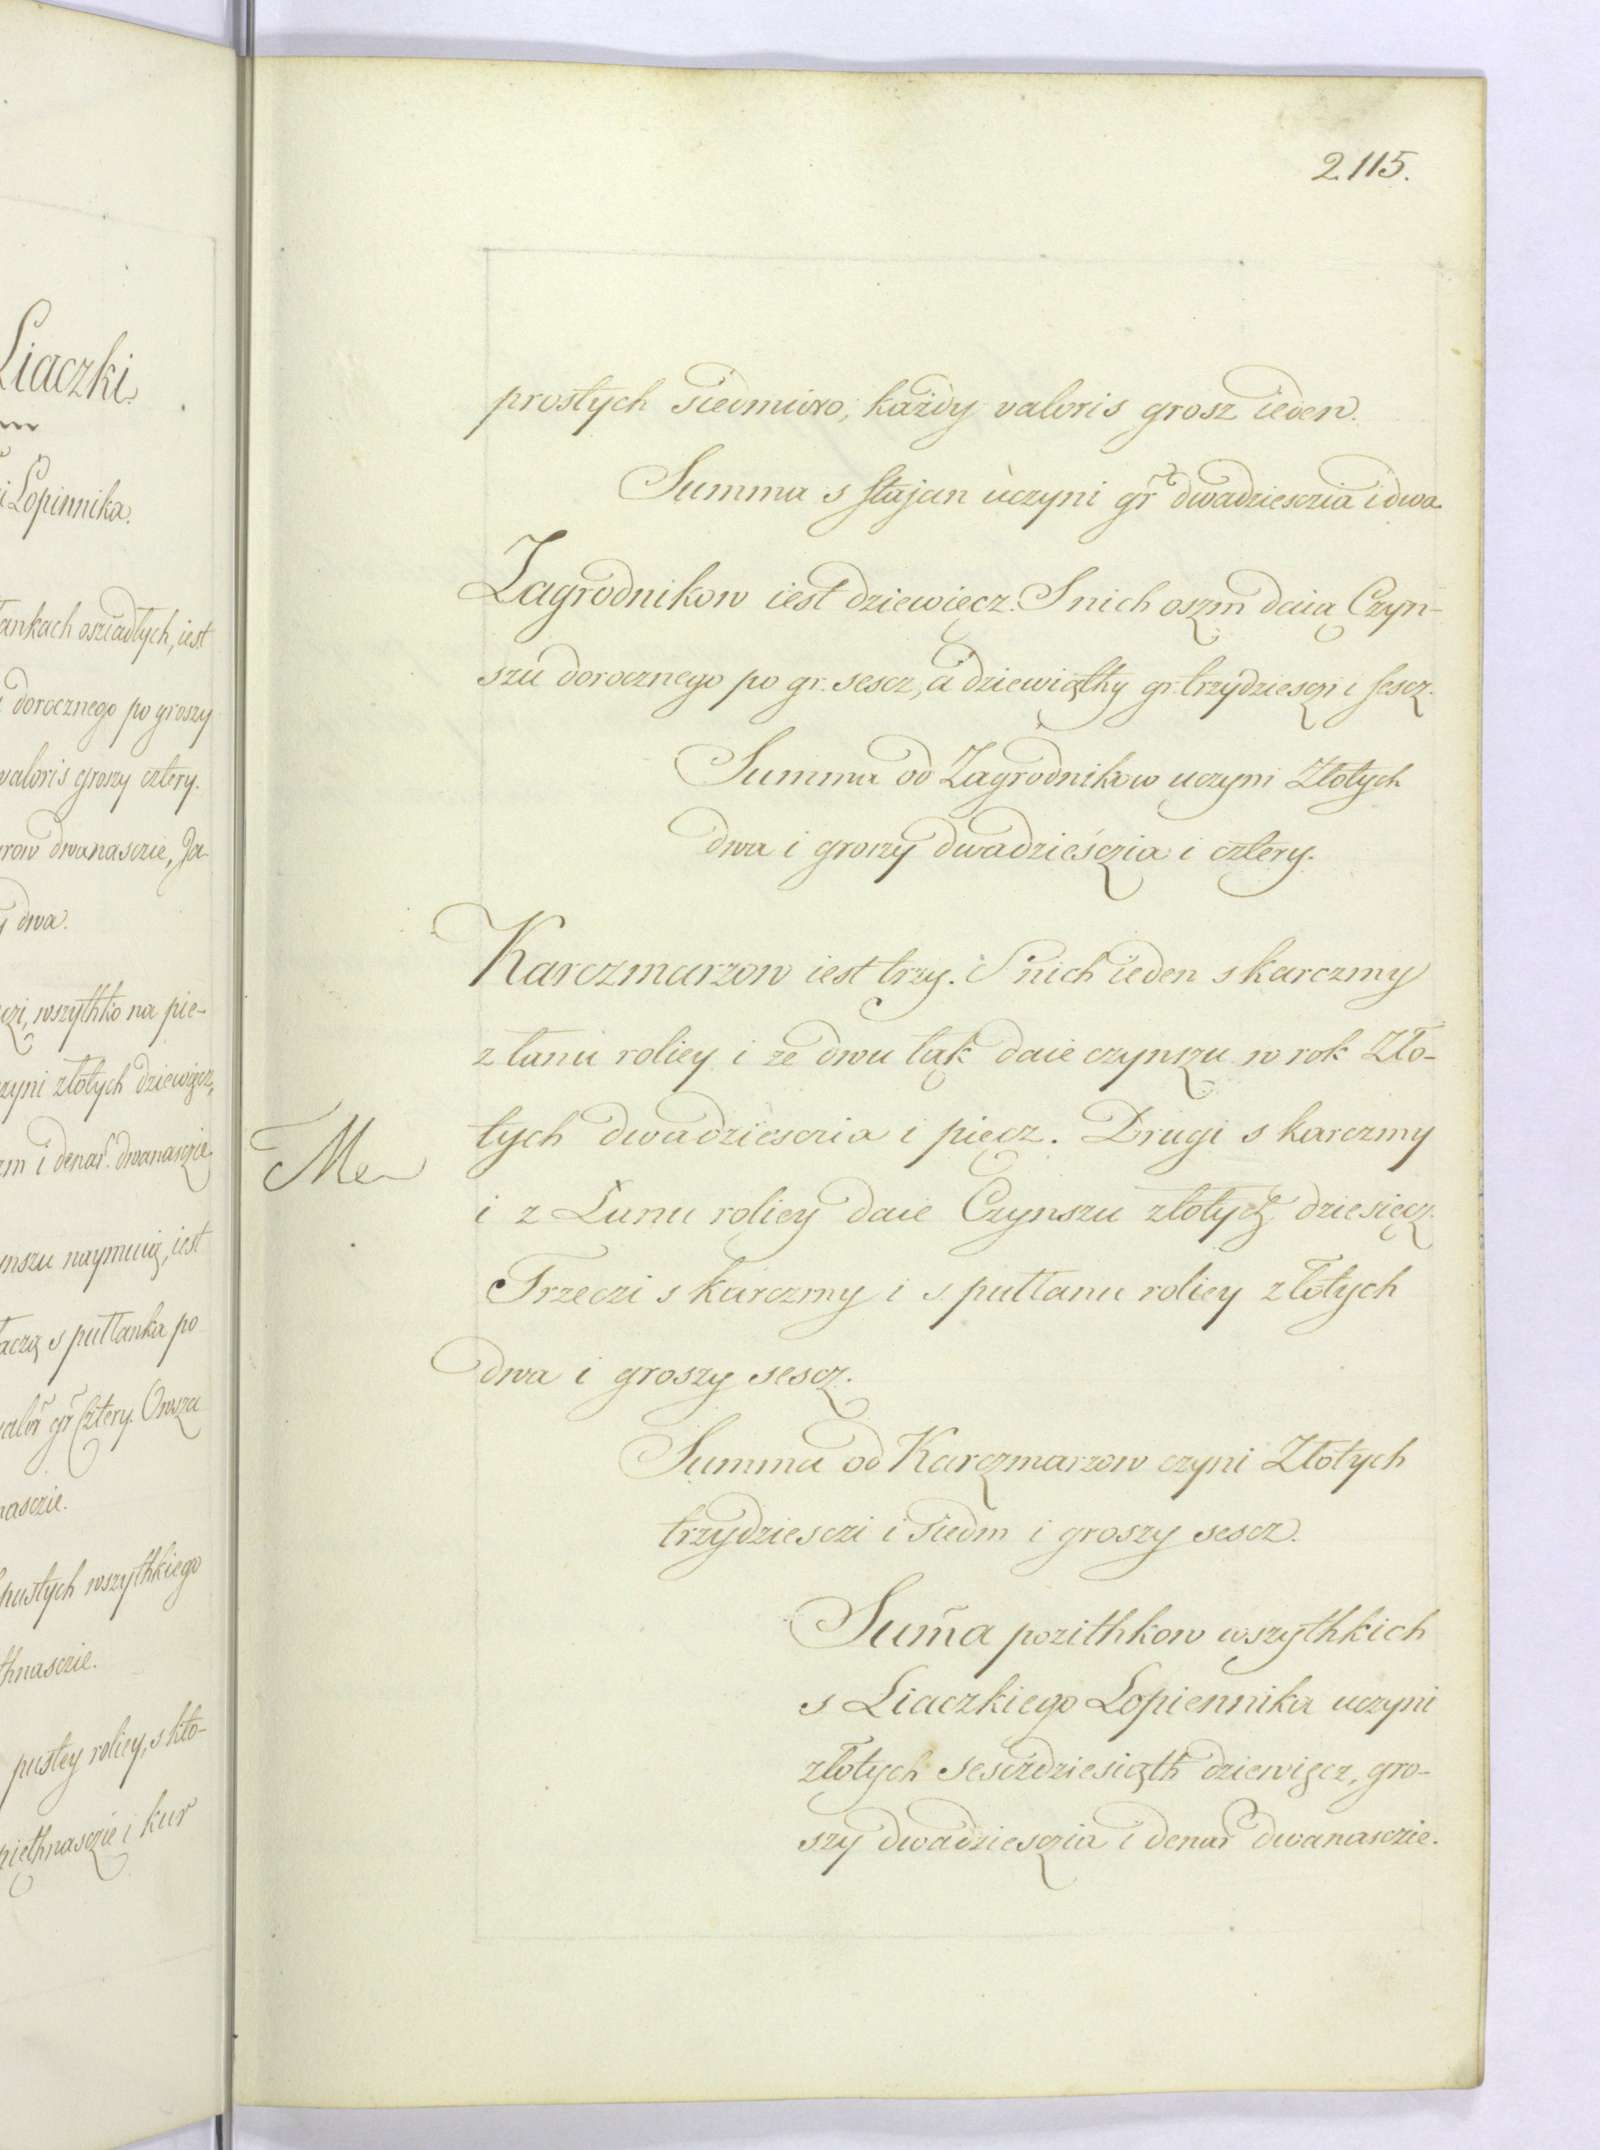 Liaczki
i Lopinnika.
łankach osziadłych, iest
dorocznego po groszy
valoris groszy cztery.
row dwanasczie, Ja-
dwa.
wszythko na pie-
czyni złotych dziewięcz,
i denar. dwanasczie
nszu naymuią, iest
płaczą s pułłanka po
valor gr cztery. Owsza
nasczie.
pustych wszythkiego
thnasczie.
pustey roliey, s kto-
piethnasczie i kur
2115.
prostych siedmioro, każdy valoris grosz ieden.
Summa s stajan uczyni gr dwadziesczia i dwa.
Zagrodnikow iest dziewięcz. S nich oszm daią Czyn-
szu dorocznego po gr. sescz, a dziewiąthy gr. trzydziesczi i sescz.
Summa od Zagrodnikow uczyni Złotych
dwa i groszy dwadzieśczia i cztery.
Karczmarzow iest trzy. S nich ieden s karczmy
z łanu roliey i ze dwu łąk daie czynszu w rok Zło-
tych dwadziesczia i pięcz. Drugi s karczmy
Me
i z Łanu roliey daie Czynszu złotych dziesięcz.
Trzeczi s karczmy i s pułłanu roliey złotych
dwa i groszy sescz.
Summa od Karczmarzow czyni Złotych
trzydziesczi i siedm i groszy sescz.
Sum̃a pozithkow wszythkich
s Liaczkiego Lopiennika uczyni
złotych sesczdziesiąth dziewięcz, gro-
szy dwadziesczia i denar dwanasczie.